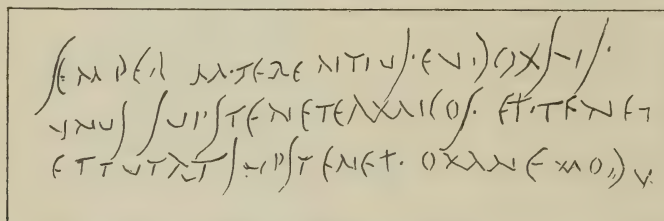 SEMPER M·TERENTIVS·EVDOXSVS·
VNVS SVPSTENET AMICOS· ET·TENET
ET TVTAT SVPSTENET· OMNE MODV